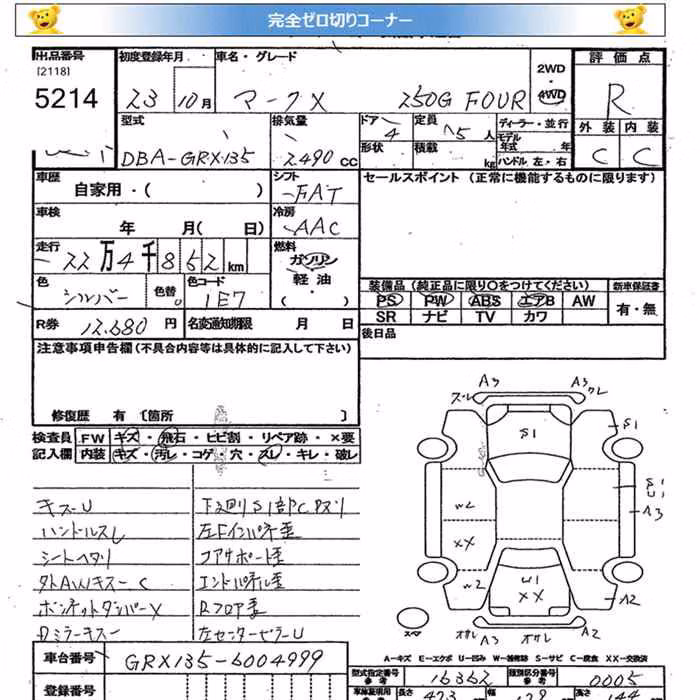 完全ゼロ切りコーナー
出品番号 初度登録年月 車名・グレード 2WD 4WD 評価点
[2118]
5214 23 10月 マークX 250G FOUR R
型式 排気量 ドア 4 定員 5人 ディーラー・並行 外装 内装
DBA-GRX135 2490 CC 形状 積載 kg モデル年式 年 ハンドル 左・右 C C
車歴 自家用・( ) シフト FAT セールスポイント(正常に機能するものに限ります)
車検 年 月( 日) 冷房 AAC
走行 22万4千852km 燃料 ガソリン 軽油 ( )
色 シルバー 色替 色コード 1E7
装備品(純正品に限り○をつけてください) 新車保証書
PS PW ABS エアB AW 有・無
SR ナビ TV カワ
R券 12,680円 名変通知期限 月 日 後日品
注意事項申告欄(不具合内容等は具体的に記入して下さい)
修復歴 有〔箇所 〕
検査員 FW キズ・飛石・ヒビ割・リペア跡・×要
記入欄 内装 キズ・汚レ・コゲ・穴・スレ・キレ・破レ
キズーU 下廻りS1部Pスリ
ハンドルスレ 左Fインパネ歪
シートヘタリ コアサポート歪
外AWキズーC エンドパネル歪
ボンネットダンパーX Rフロア歪
Dミラーキズー 左センターピラーU
ズレ A3 A3 ワレ
S1 S1
S1
U1
W2 A3
XX
W2 W1 A2
XX
スペア オサレ A3 オサレ A2
A-キズ E-エクボ U-凹み W-補修跡 S-サビ C-腐食 XX-交換済
車台番号 GRX135-6004999
型式指定番号 16362 類別区分番号 0005
登録番号 長さ 473 幅 高さ 144